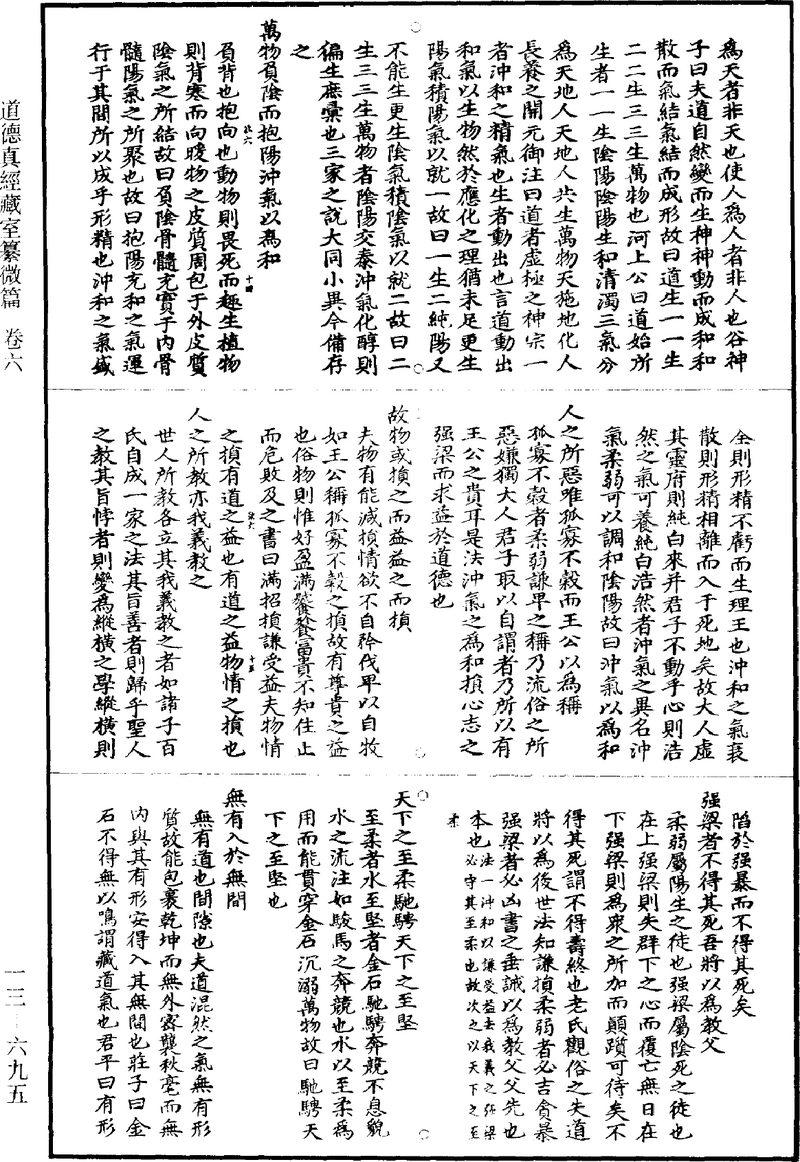 爲天者非天也使人爲人者非人也谷神
子曰夫道自然變而生神神動而成和和
散而氣結氣結而成形故曰道生一一生
二二生三三生萬物也河上公曰道始所
生者一一生陰陽陰陽生和清濁三氣分
爲天地人天地人共生萬物天施地化人
長養之開元御注曰道者虛極之神宗一
者沖和之精氣也生者動出也言道動出
和氣以生物然於應化之理猶未足更生
陽氣積陽氣以就一故曰一生二純陽又
不能生更生陰氣積陰氣以就二故曰二
生三三生萬物者陰陽交泰沖氣化醇則
徧生庶彙也三家之說大同小異今備存
之
萬物負陰而抱陽沖氣以爲和
負背也抱向也動物則畏死而趣生植物
則背寒而向暖物之皮質周包于外皮質
陰氣之所結故曰負陰骨髓充實于內骨
髓陽氣之所聚也故曰抱陽充和之氣運
行于其間所以成乎形精也沖和之氣盛
全則形精不虧而生理王也沖和之氣衰
散則形精相離而入于死地矣故大人虛
其靈府則純白來并君子不動乎心則浩
然之氣可養純白浩然者沖氣之異名沖
氣柔弱可以調和陰陽故曰沖氣以爲和
人之所惡唯孤寡不穀而王公以爲稱
孤寡不穀者柔弱謙卑之稱乃流俗之所
惡嫌獨大人君子取以自謂者乃所以有
王公之貴耳是法沖氣之爲和損心志之
强梁而求益於道德也
故物或損之而益益之而損
夫物有能減損情欲不自矜伐卑以自牧
如王公稱孤寡不穀之損故有尊貴之益
也俗物則惟好盈滿饕餮富貴不知住止
而危敗及之書曰滿招損謙受益夫物情
之損有道之益也有道之益物情之損也
人之所教亦我義教之
世人所教各立其我義教之者如諸子百
氏自成一家之法其旨善者則歸乎聖人
之教其旨悖者則變爲縱橫之學縱橫則
陷於强暴而不得其死矣
强梁者不得其死吾將以爲教父
柔弱屬陽生之徒也强梁屬陰死之徒也
在上强梁則失群下之心而覆亡無日在
下强梁則爲衆之所加而顛躓可待矣不
得其死謂不得壽終也老氏觀俗之失道
將以爲後世法知謙損柔弱者必吉貪暴
强梁者必凶書之垂誡以爲教父父先也
本也必法一沖和以謙受益去我義之强梁
必守其至柔也故次之以天下之至
柔
天下之至柔馳騁天下之至堅
至柔者水至堅者金石馳騁奔競不息貌
水之流注如駿馬之奔競也水以至柔爲
用而能貫穿金石沉溺萬物故曰馳騁天
下之至堅也
無有入於無間
無有道也間隙也夫道混然之氣無有形
質故能包裹乾坤而無外密襲秋毫而無
內與其有形安得入其無間也莊子曰金
石不得無以鳴謂藏道氣也君平曰有形
道德真經藏室纂微篇 卷六
一三—六九五